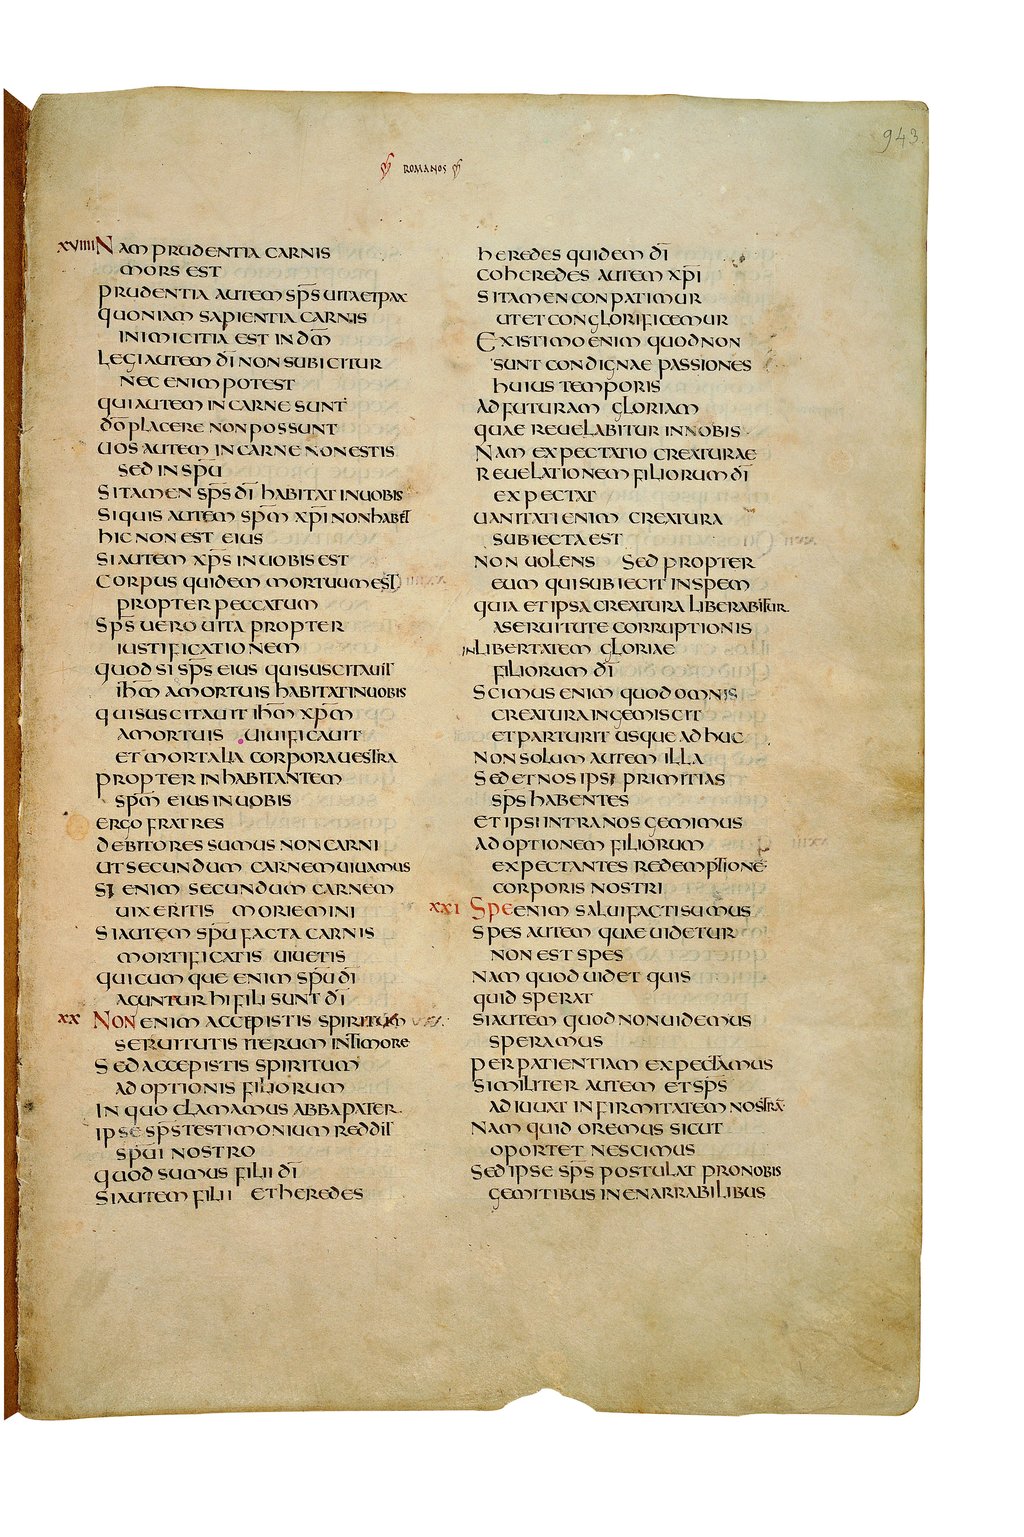 943
ROMANOS
XVIIII NAM PRUDENTIA CARNIS
MORS EST
PRUDENTIA AUTEM SP̄S UITA ET PAX
QUONIAM SAPIENTIA CARNIS
INIMICITIA EST IN DM̄
LEGI AUTEM DĪ NON SUBICITUR
NEC ENIM POTEST
QUI AUTEM IN CARNE SUNT
DŌ PLACERE NON POSSUNT
UOS AUTEM IN CARNE NON ESTIS
SED IN SPŪ
SI TAMEN SP̄S DĪ HABITAT IN UOBIS
SI QUIS AUTEM SPM̄ XPĪ NON HABET
HIC NON EST EIUS
SI AUTEM XP̄S IN UOBIS EST
CORPUS QUIDEM MORTUUM EST
PROPTER PECCATUM
SP̄S UERO UITA PROPTER
IUSTIFICATIONEM
QUOD SI SP̄S EIUS QUI SUSCITAUIT
IHM̄ A MORTUIS HABITAT IN UOBIS
QUI SUSCITAUIT IHM̄ XPM̄
A MORTUIS UIUIFICAUIT
ET MORTALIA CORPORA UESTRA
PROPTER INHABITANTEM
SPM̄ EIUS IN UOBIS
ERGO FRATRES
DEBITORES SUMUS NON CARNI
UT SECUNDUM CARNEM UIUAMUS
SI ENIM SECUNDUM CARNEM
UIXERITIS MORIEMINI
SI AUTEM SPŪ FACTA CARNIS
MORTIFICATIS UIUETIS
QUICUMQUE ENIM SPŪ DĪ
AGUNTUR HI FILI SUNT DĪ
XX NON ENIM ACCEPISTIS SPIRITUM
SERUITUTIS ITERUM IN TIMORE
SED ACCEPISTIS SPIRITUM
ADOPTIONIS FILIORUM
IN QUO CLAMAMUS ABBA PATER
IPSE SP̄S TESTIMONIUM REDDIT
SPŪI NOSTRO
QUOD SUMUS FILII DĪ
SI AUTEM FILII ET HEREDES
HEREDES QUIDEM DĪ
COHEREDES AUTEM XPĪ
SI TAMEN CONPATIMUR
UT ET CONGLORIFICEMUR
EXISTIMO ENIM QUOD NON
SUNT CONDIGNAE PASSIONES
HUIUS TEMPORIS
AD FUTURAM GLORIAM
QUAE REUELABITUR IN NOBIS
NAM EXPECTATIO CREATURAE
REUELATIONEM FILIORUM DĪ
EXPECTAT
UANITATI ENIM CREATURA
SUBIECTA EST
NON UOLENS SED PROPTER
EUM QUI SUBIECIT IN SPEM
QUIA ET IPSA CREATURA LIBERABITUR
A SERUITUTE CORRUPTIONIS
IN LIBERTATEM GLORIAE
FILIORUM DĪ
SCIMUS ENIM QUOD OMNIS
CREATURA INGEMISCIT
ET PARTURIT USQUE ADHUC
NON SOLUM AUTEM ILLA
SED ET NOS IPSI PRIMITIAS
SP̄S HABENTES
ET IPSI INTRA NOS GEMIMUS
ADOPTIONEM FILIORUM
EXPECTANTES REDEMPTIONE
CORPORIS NOSTRI
XXI SPE ENIM SALUI FACTI SUMUS
SPES AUTEM QUAE UIDETUR
NON EST SPES
NAM QUOD UIDET QUIS
QUID SPERAT
SI AUTEM QUOD NON UIDEMUS
SPERAMUS
PER PATIENTIAM EXPECTAMUS
SIMILITER AUTEM ET SP̄S
ADIUUAT INFIRMITATEM NOSTRĀ
NAM QUID OREMUS SICUT
OPORTET NESCIMUS
SED IPSE SP̄S POSTULAT PRO NOBIS
GEMITIBUS INENARRABILIBUS